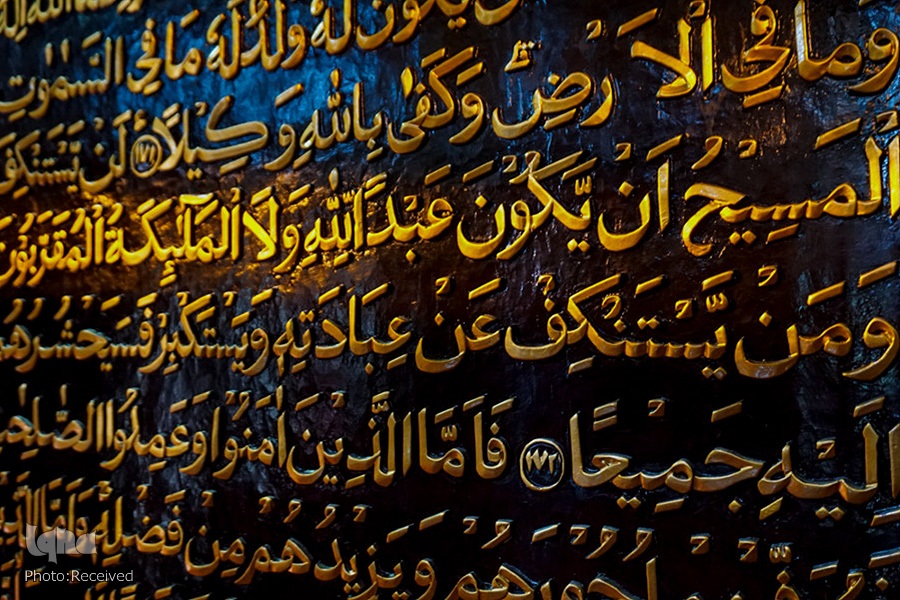 يَكُونَ لَهُ وَلَدٌ لَهُ مَا فِي السَّمٰوٰتِ
وَمَا فِي الْاَرْضِ وَكَفٰى بِاللّٰهِ وَكِيْلًا ﴿۱۷۱﴾ لَنْ يَّسْتَنْكِفَ
الْمَسِيْحُ اَنْ يَّكُوْنَ عَبْدًا لِلّٰهِ وَلَا الْمَلٰٓئِكَةُ الْمُقَرَّبُوْنَ
وَمَنْ يَّسْتَنْكِفْ عَنْ عِبَادَتِهٖ وَيَسْتَكْبِرْ فَسَيَحْشُرُهُمْ
اِلَيْهِ جَمِيْعًا ﴿۱۷۲﴾ فَاَمَّا الَّذِيْنَ اٰمَنُوْا وَعَمِلُوا الصّٰلِحٰتِ
اُجُوْرَهُمْ وَيَزِيْدُهُمْ مِنْ فَضْلِهٖ وَاَمَّا الَّذِيْنَ
Photo:Received